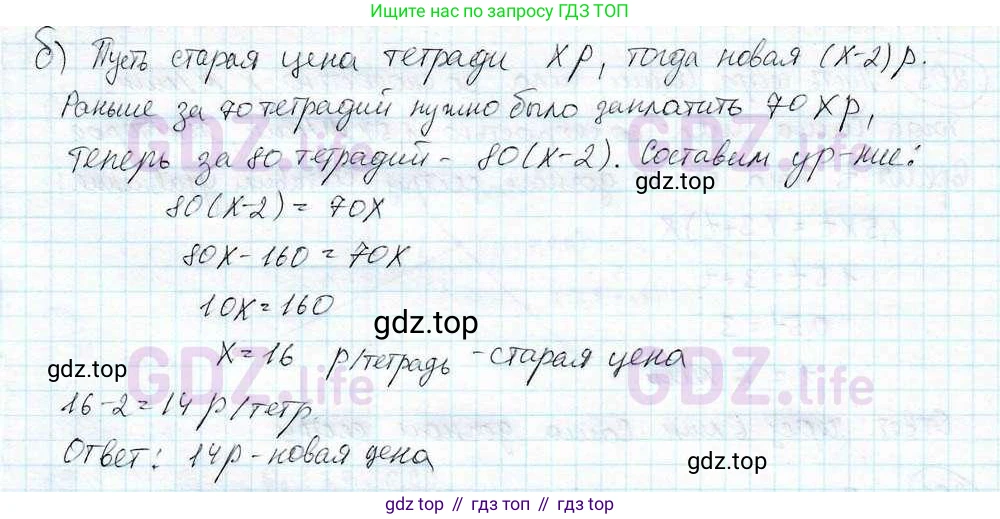 Ищите нас по запросу ГДЗ ТОП
б) Пусть старая цена тетради х р, тогда новая (х-2) р.
Раньше за 70 тетрадий нужно было заплатить 70х р,
теперь за 80 тетрадий - 80(х-2). Составим ур-ние:
gdz.top
80(х-2) = 70х
80х - 160 = 70х
10х = 160
gdz.top
GDZ.life GDZ.life
х = 16 р/тетрадь - старая цена
gdz.top
16-2 = 14 р/тетр.
Ответ: 14р - новая цена
gdz.top
gdz.top // гдз топ // gdz top